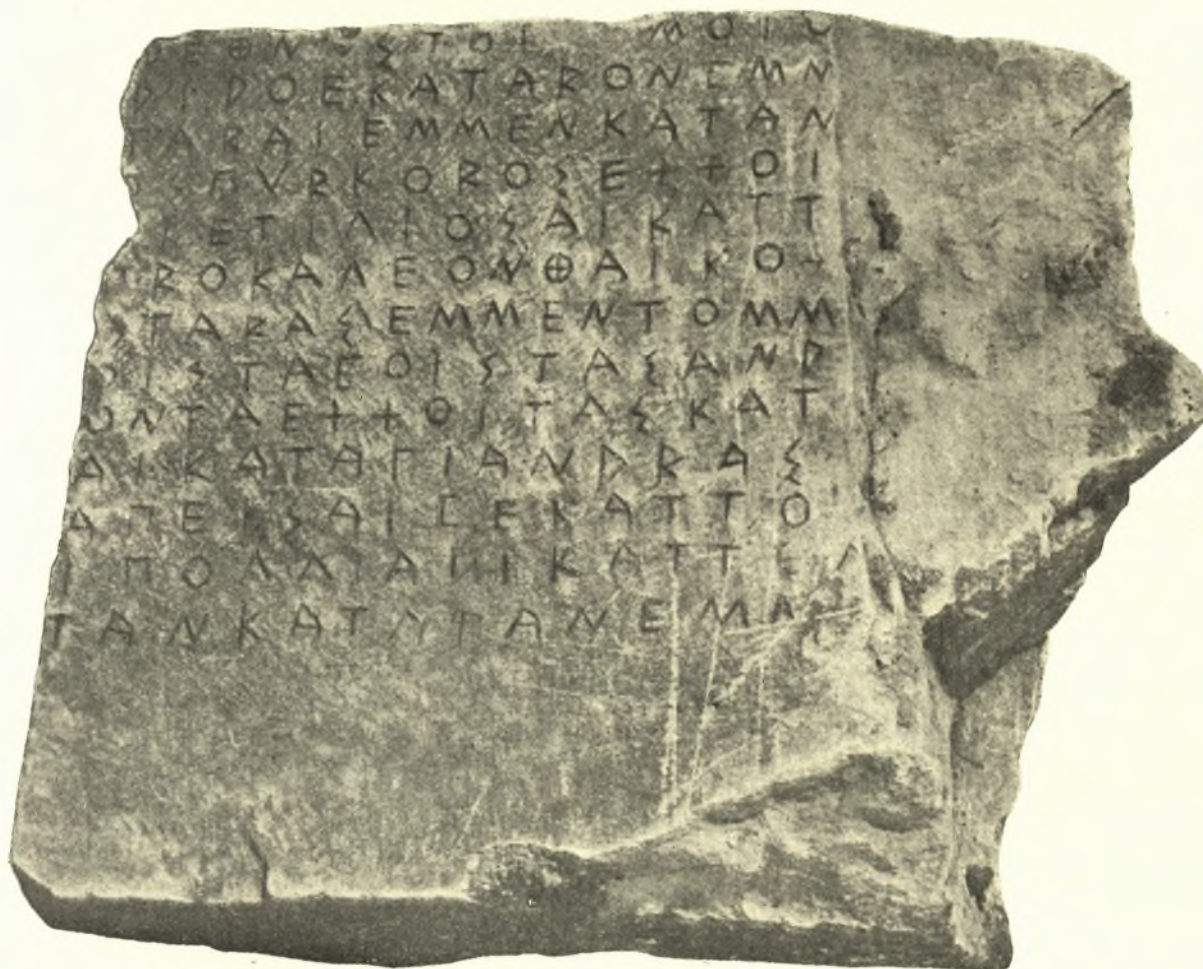 ΕΘΝΣΤΟΙ ΜΟΙ
ΔΙΔΟΕΚΑΤΑΡΟΝΕΜΝ
ΑΡΑΙΕΜΜΕΝΚΑΤΑΝ
ΠΥΡΚΟΡΟΣΕ++ΟΙ
ΕΤΙΛΙΟΣΑΙΚΑΤΤ
ΡΟΚΑΛΕΟΝΘΑΙΚΟ
ΣΓΑΡΑΣΕΜΜΕΝΤΟΜΜ
ΟΙΣΤΑΕΟΙΣΤΑΣΑΝΔ
ΟΝΤΑΕ++ΟΙΤΑΣΚΑΤ
ΑΙΚΑΤΑΓΙΑΝΔΡΑΣ
ΑΠΕΙΣΑΙΓΕΚΑΤΤΟ
ΙΠΟΛΛΙΑΝΙΚΑΤΤΕΛ
ΤΑΝΚΑΤΥΓΑΝΕΜ